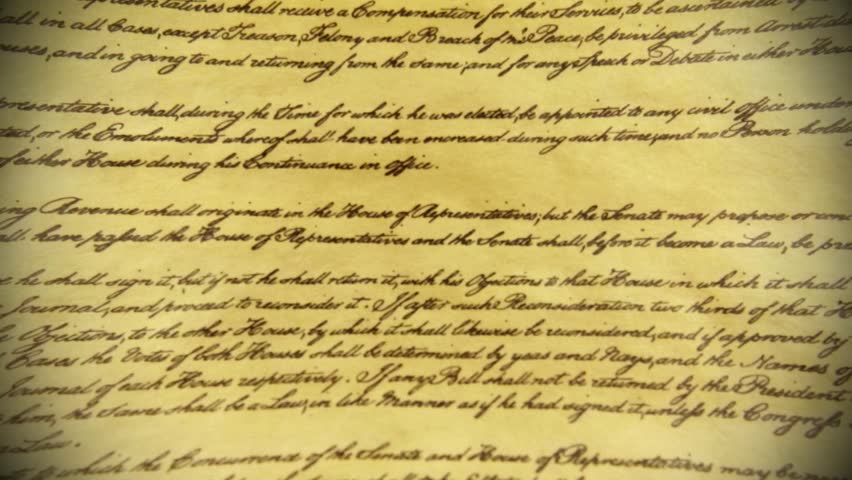 presentatives shall receive a Compensation for their Services, to be ascertained by
all in all Cases, except Treason, Felony and Breach of the Peace, be privileged from Arrest
ouses, and in going to and returning from the same; and for any Speech or Debate in either House
presentative shall, during the Time for which he was elected, be appointed to any civil Office under
ted, or the Emoluments whereof shall have been encreased during such time; and no Person hold
of either House during his Continuance in Office.
ing Revenue shall originate in the House of Representatives; but the Senate may propose or conc
all have passed the House of Representatives and the Senate, shall, before it become a Law, be pre
he shall sign it, but if not he shall return it, with his Objections to that House in which it shall
Journal, and proceed to reconsider it. If after such Reconsideration two thirds of that H
Objections, to the other House, by which it shall likewise be reconsidered, and if approved by
Cases the Votes of both Houses shall be determined by yeas and Nays, and the Names of
Journal of each House respectively. If any Bill shall not be returned by the President
him, the Same shall be a Law, in like Manner as if he had signed it, unless the Congress
a Law.
to which the Concurrence of the Senate and House of Representatives may be